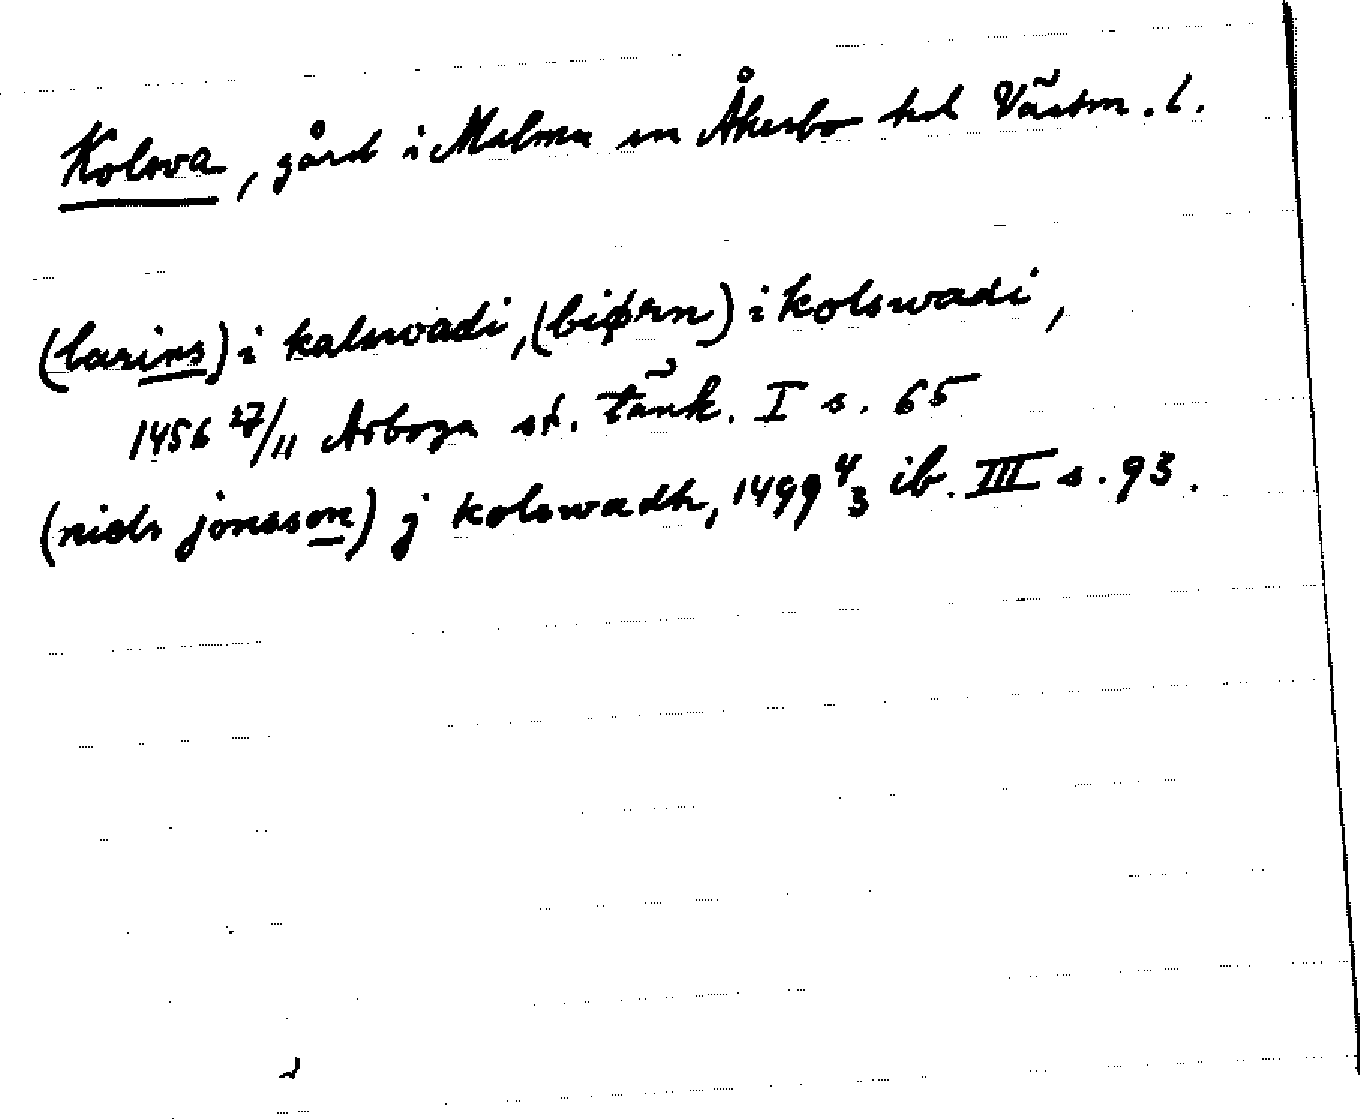 Kolsva, gård i Malma sn Åkerbo hd Västm. l.
(larins) i kalswadi, (biørn) i kolswadi,
1456 27/11 Arboga st. tänk. I s. 65
(niels jonsson) j kolswadh, 1499 4/3 ib. III s. 93.